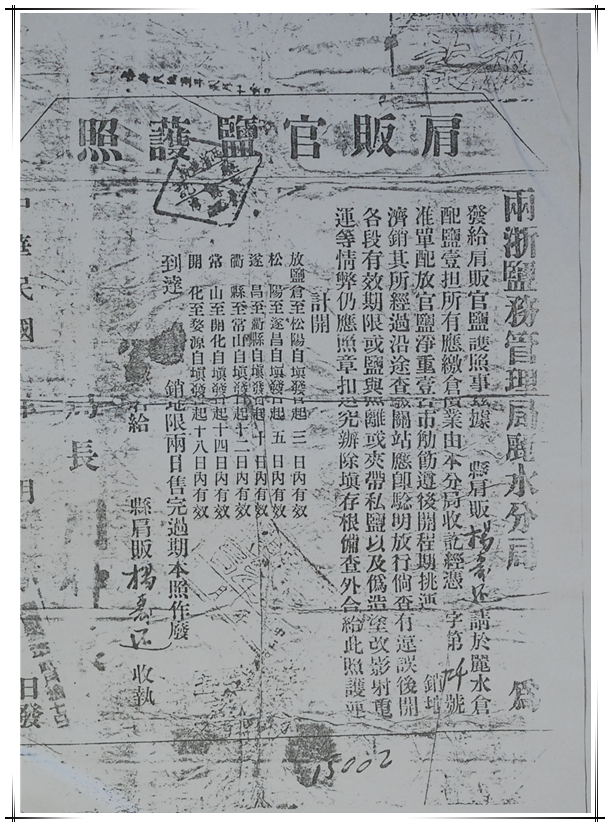 肩販官鹽護照
兩浙鹽務管理局麗水分局 爲
發給肩販官鹽護照事茲據 縣肩販楊 請於麗水倉
配鹽壹担所有應繳倉價業由本分局收訖經憑 字第 號
准單配放官鹽淨重壹百市觔飭遵後開程期挑運 銷地
濟銷其所經過沿途查緝關站應卽驗明放行倘查有違誤後開
各段有效期限或鹽與照離或夾帶私鹽以及僞造塗改影射重
運等情弊仍應照章扣追究辦除填存根備查外合給此照護運
計開
放鹽倉至松陽自填發日起 三 日內有效
松 陽至遂昌自填發日起 五 日內有效
遂 昌至衢縣自填發日起 十 日內有效
衢 縣至常山自填發日起十二日內有效
常 山至開化自填發日起十四日內有效
開 化至婺源自填發日起十八日內有效
到達 銷地限兩日售完過期本照作廢
右給 縣肩販楊 收執
局長
中華民國 年 月 日發
15002